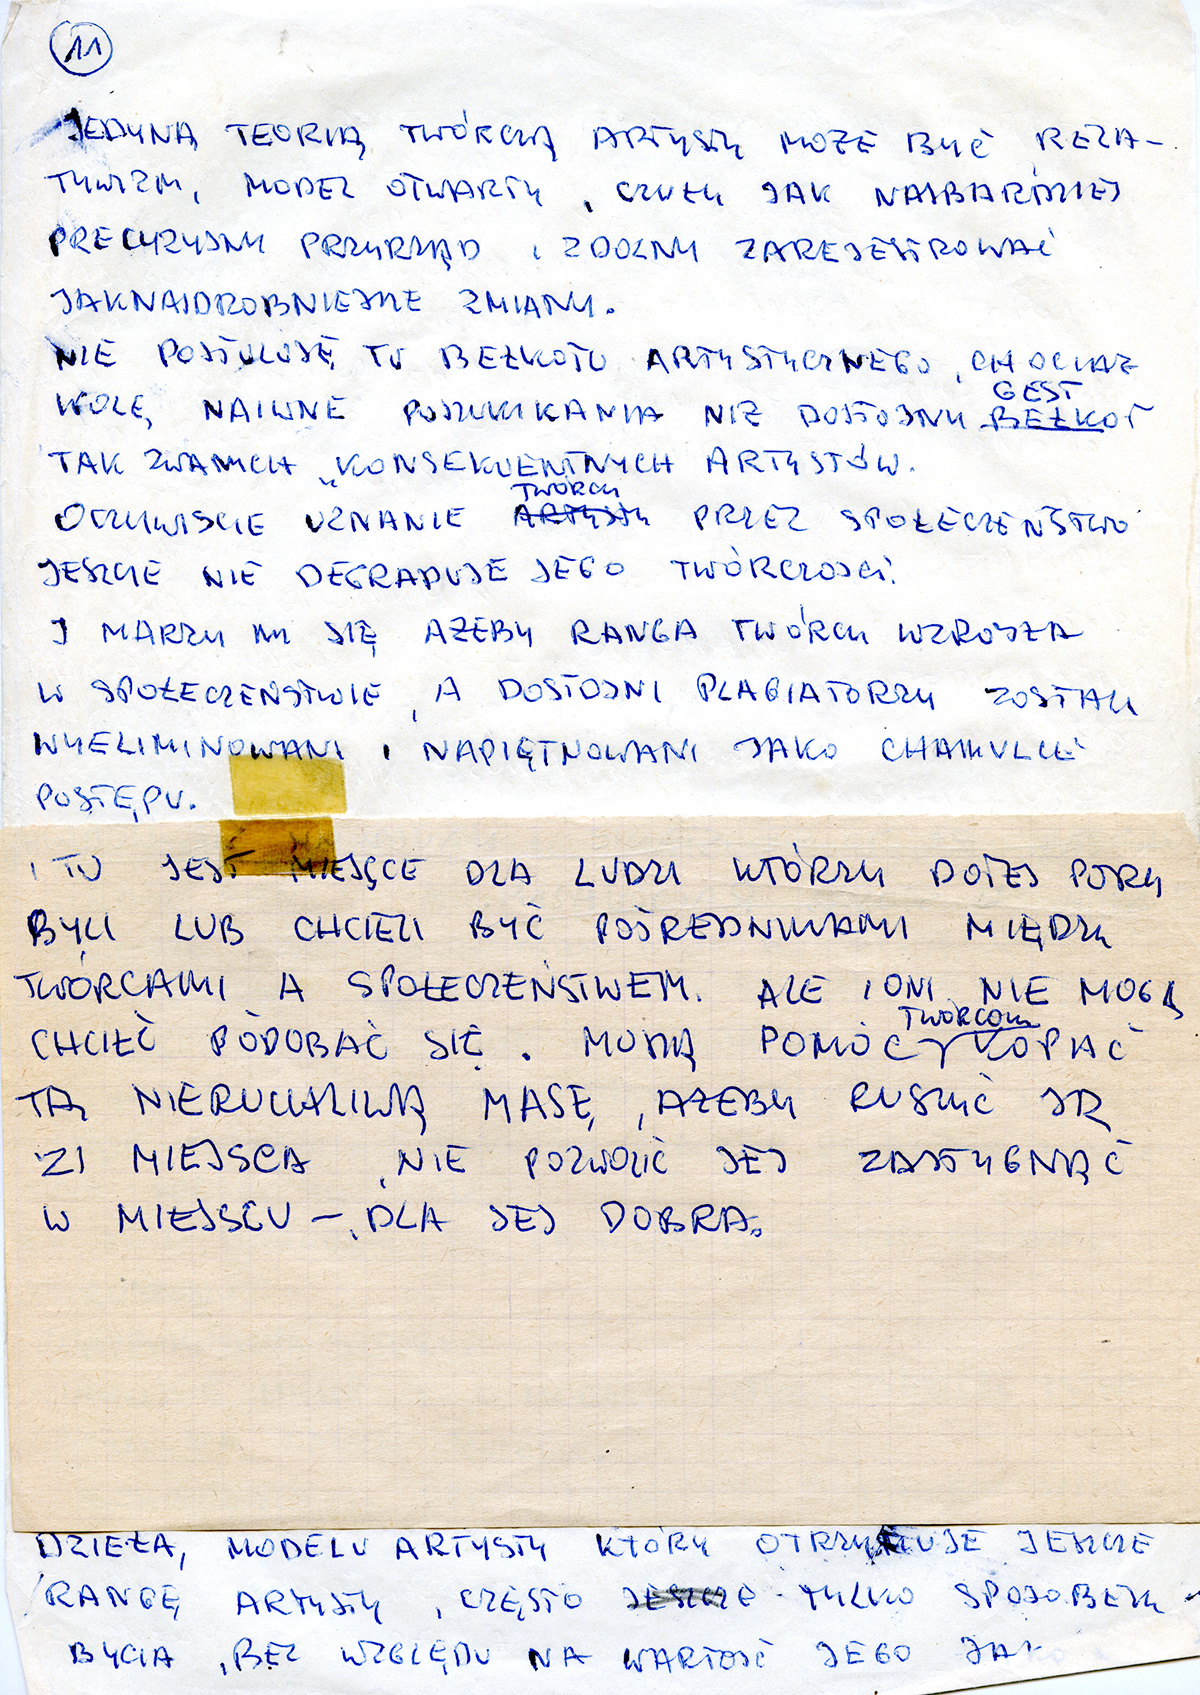 11
JEDYNĄ TEORIĄ TWÓRCZĄ ARTYSTY MOŻE BYĆ RELA-
TYWIZM, MODEL OTWARTY, CZUŁY JAK NAJBARDZIEJ
PRECYZYJNY PRZYRZĄD I ZDOLNY ZAREJESTROWAĆ
JAKNAJDROBNIEJSZE ZMIANY.
NIE POSTULUJĘ TU BEŁKOTU ARTYSTYCZNEGO, CHOCIAŻ
GEST
WOLĘ NAIWNE POSZUKIKANIA NIŻ DOSTOJNY BEŁKOT
TAK ZWANYCH „KONSEKWENTNYCH ARTYSTÓW.
TWÓRCY
OCZYWISCIE UZNANIE ARTYSTY PRZEZ SPOŁECZEŃSTWO
JESZCZE NIE DEGRADUJE JEGO TWÓRCZOŚCI.
I MARZY MI SIĘ AŻEBY RANGA TWÓRCY WZROSŁA
W SPOŁECZEŃSTWIE, A DOSTOJNI PLAGIATORZY ZOSTALI
WYELIMINOWANI I NAPIĘTNOWANI JAKO CHAMULCE
POSTĘPU.
I TU JEST MIEJSCE DLA LUDZI KTÓRZY DOTEJ PORY
BYLI LUB CHCIELI BYĆ POŚREDNIKAMI MIĘDZY
TWÓRCAMI A SPOŁECZEŃSTWEM. ALE I ONI NIE MOGĄ
TWÓRCOM
CHCIEĆ PODOBAĆ SIĘ. MUSZĄ POMÓC KOPAĆ
TĄ NIERUCHLIWĄ MASĘ, AŻEBY RUSZYĆ JĄ
ZI MIEJSCA, NIE POZWOLIĆ JEJ ZASTYGNĄĆ
W MIEJSCU – DLA JEJ DOBRA.
DZIEŁA, MODELU ARTYSTY KTÓRY OTRZYMUJE JESZCZE
RANGĘ ARTYSTY, CZĘSTO JESZCZE TYLKO SPOSOBEM
BYCIA, BEZ WZGLĘDU NA WARTOŚĆ JEGO JAKO